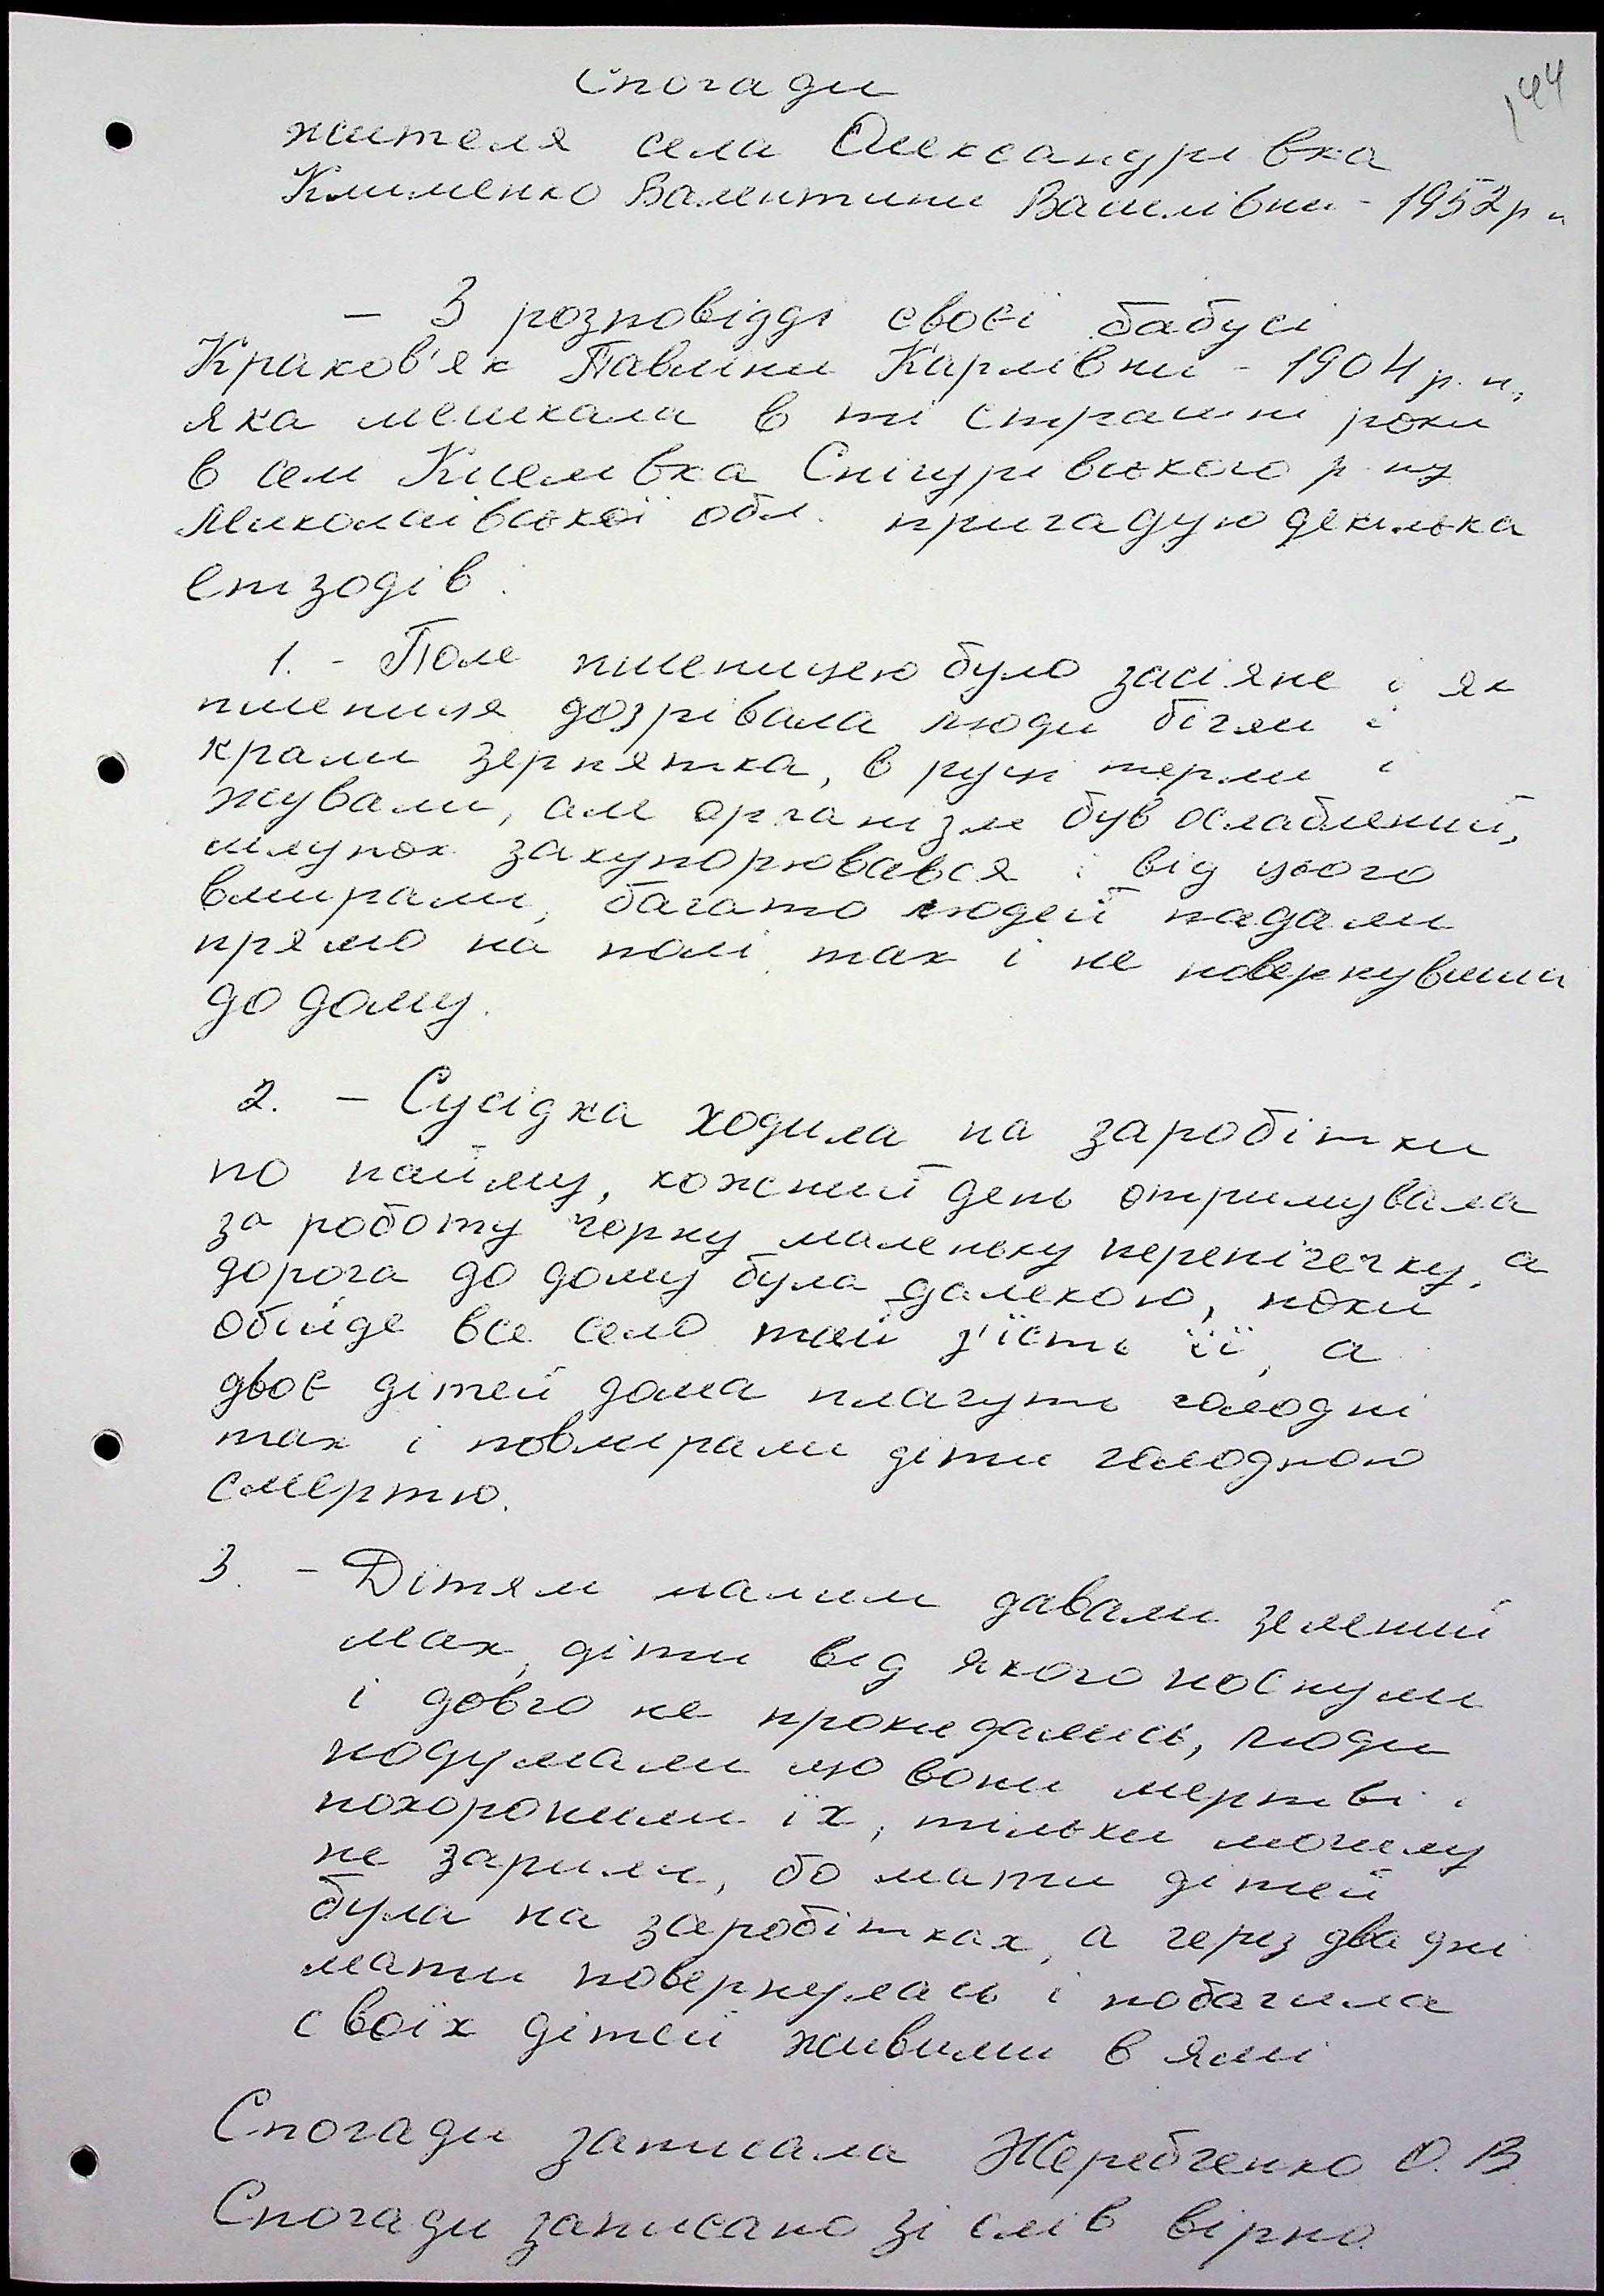 144
Спогади
жителя села Олександрівка
Клименко Валентини Василівни - 1952р н
- З розповідді своєї бабусі
Краков'як Павліни Карлівни - 1904 р. н,
яка мешкала в ті страшні роки
в селі Киселівка Снігурівського р-ну
Миколаївської обл. пригадую декілька
епізодів:
1. - Поле пшеницею було засіяне і як
пшениця дозрівала люди бігли і
крали зернятка, в руці терли і
жували, але організм був ослаблений,
шлунок закупорювався і від цього
вмирали, багато людей падали
прямо на полі так і не повернувшись
до дому.
2. - Сусідка ходила на заробітки
по найму, кожний день отримувала
за роботу чорну маленьку перепічечку, а
дорога до дому була далекою, поки
обійде все село той з'їсть її, а
двоє дітей дома плачуть голодні
так і повмирали діти голодною
смертю.
3. - Дітям малим давали зелений
мак, діти від якого поснули
і довго не прокидались, люди
подумали що вони мертві і
похоронили їх, тільки могилу
не зарили, бо мати дітей
була на заробітках, а через два дні
мати повернулась і побачила
своїх дітей живими в ямі
Спогади записала Жеребченко О. В
Спогади записано зі слів вірно.